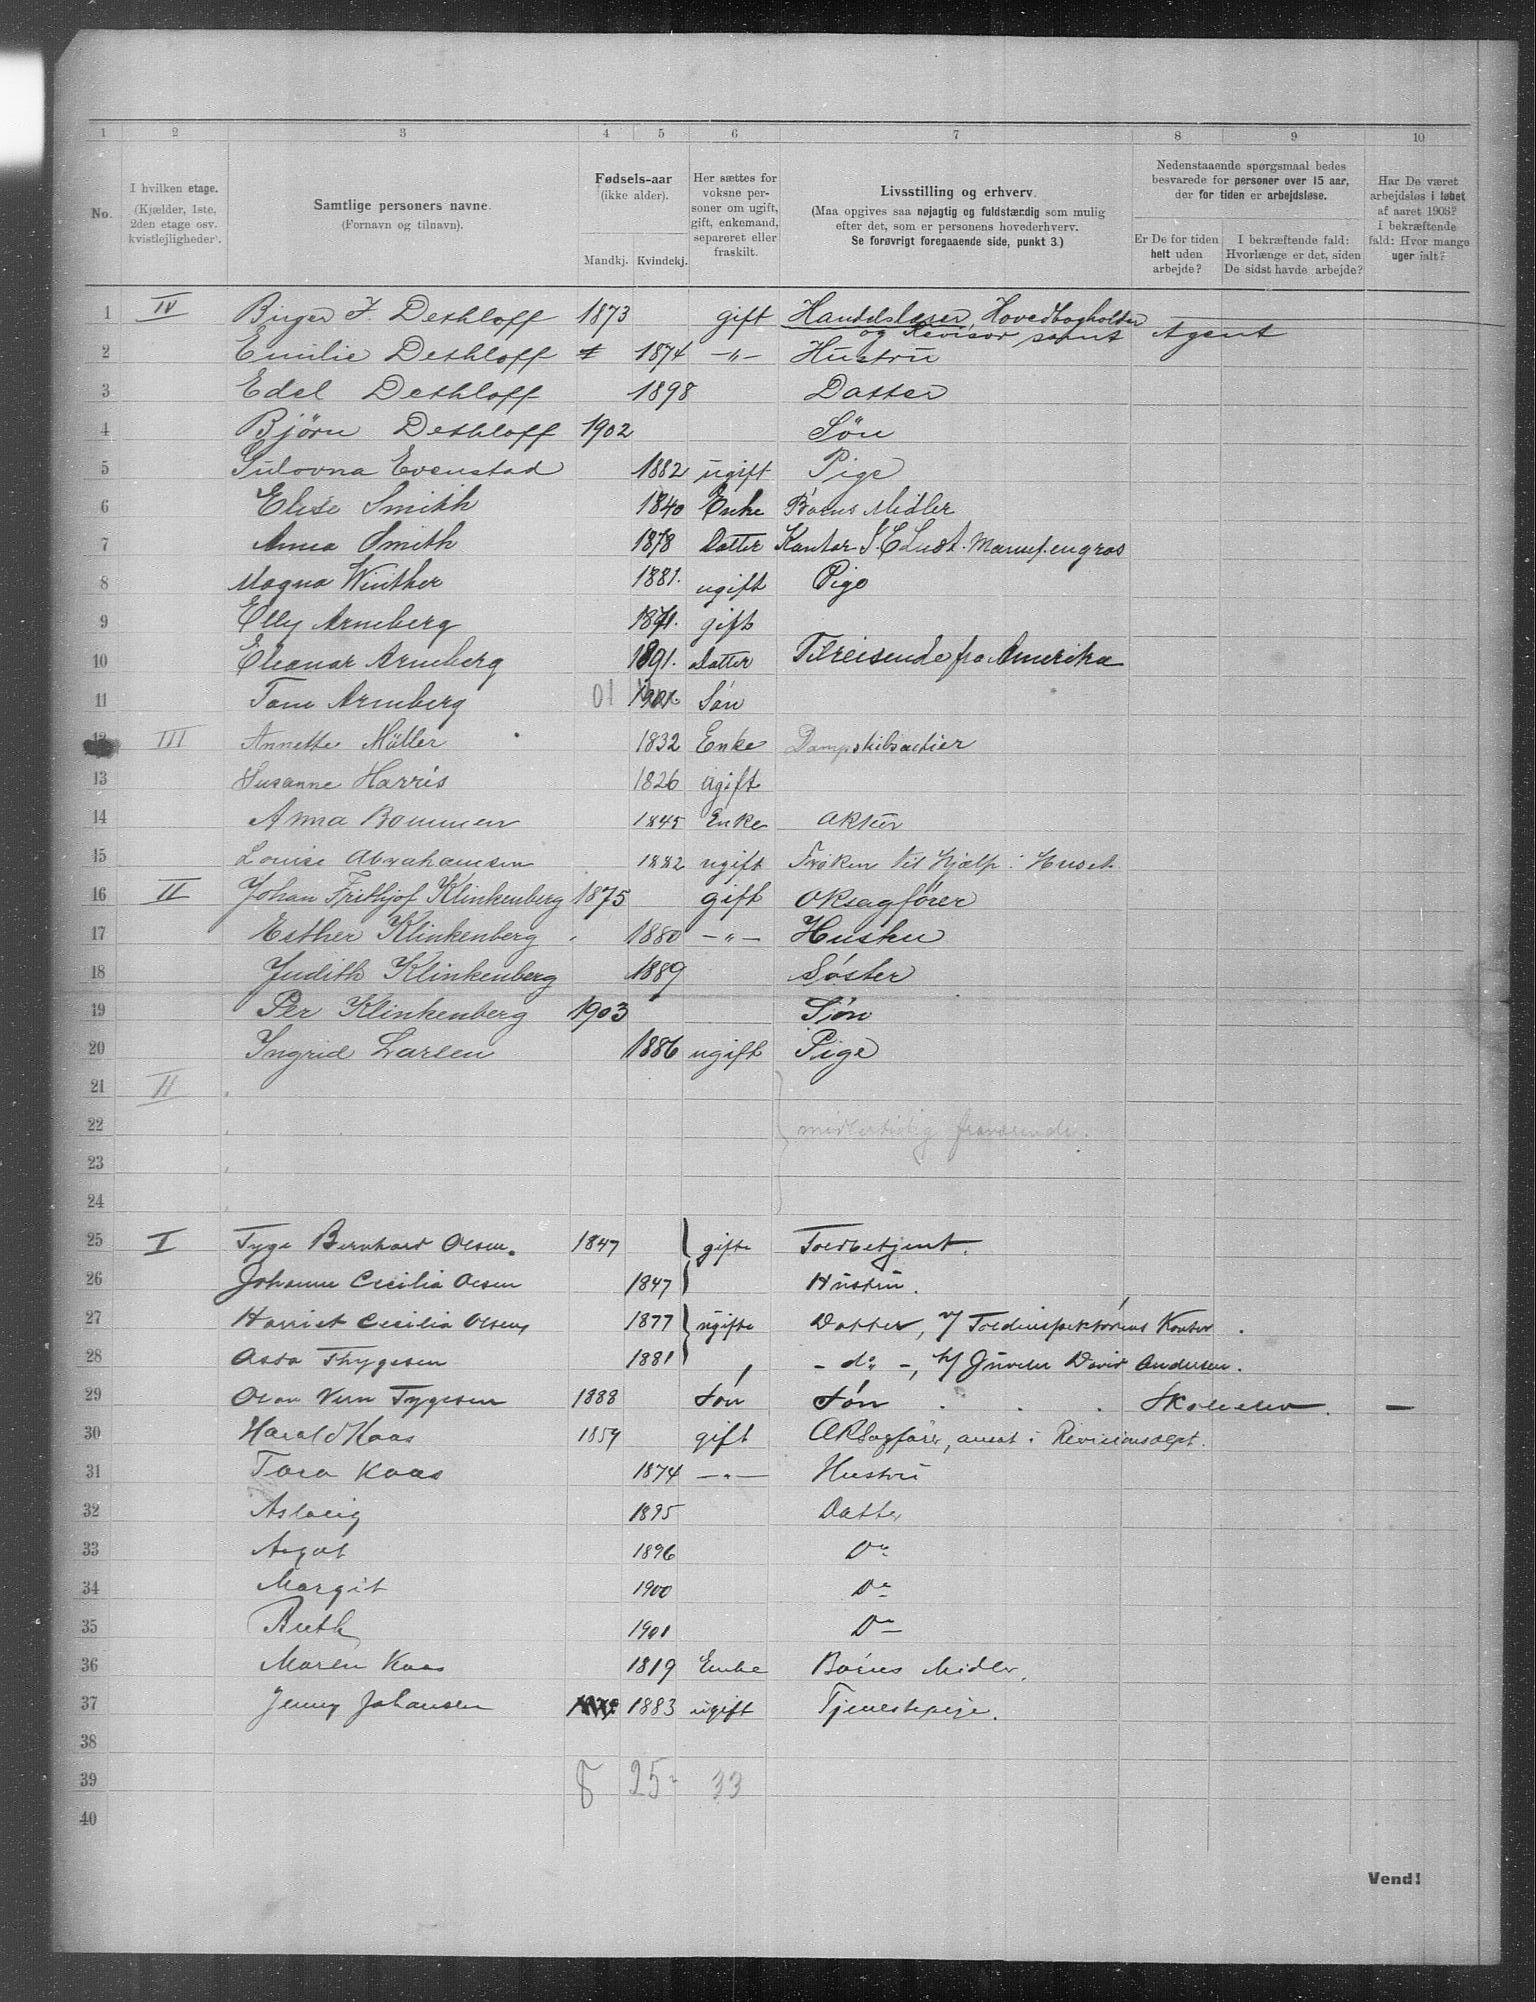 1 2 3 4 5 6 7 8 9 10
No.
I hvilken etage.
(Kjælder, 1ste,
2den etage osv.
kvistlejligheder).
Samtlige personers navne.
(Fornavn og tilnavn).
Fødsels-aar
(ikke alder).
Mandkj. Kvindekj.
Her sættes for
voksne per-
soner om ugift,
gift, enkemand,
separeret eller
fraskilt.
Livsstilling og erhverv.
(Maa opgives saa nøjagtig og fuldstændig som mulig
efter det, som er personens hovederhverv.
Se forøvrigt foregaaende side, punkt 3.)
Nedenstaaende spørgsmaal bedes
besvarede for personer over 15 aar,
der for tiden er arbejdsløse.
Er De for tiden
helt uden
arbejde?
I bekræftende fald:
Hvorlænge er det, siden
De sidst havde arbejde?
Har De været
arbejdsløs i løbet
af aaret 1903?
I bekræftende
fald: Hvor mange
uger ialt?
1 IV Birger F. Dethloff 1873 gift Handelslærer, Hovedbogholder
og Revisor samt Agent
2 Emilie Dethloff 1874 -„- Hustru
3 Edel Dethloff 1898 Datter
4 Bjørn Dethloff 1902 Søn
5 Evenstad 1882 ugift Pige
6 Elise Smith 1840 Enke Børns Midler
7 Anna Smith 1878 Datter Kontor Manuf. engros
8 Magna Winther 1881. ugift Pige
9 Elly Arneberg 1871. gift
10 Eleanor Arneberg 1891. Datter Tilreisende fra Amerika
11 Tom Arneberg 01 Søn
12 III Annette Møller 1832 Enke Dampskibsaktier
13 Susanne Harris 1826 ugift
14 Anna Bommen 1845 Enke Aktier
15 Louise Abrahamsen 1882 ugift Frøken til Hjælp i Huset
16 II Johan Frithjof Klinkenberg 1875 gift Oksagfører
17 Esther Klinkenberg 1880 -„- Hustru
18 Judith Klinkenberg 1889 Søster
19 Per Klinkenberg 1903 Søn
20 Ingrid Larsen 1886 ugift Pige
21 II
22 midlertidig fraværende.
23
24
25 I Tyge Bernhard Olsen. 1847 gifte Toldbetjent.
26 Johanne Cecilia Olsen 1847 Hustru.
27 Harriet Cecilia Olsen 1877 ugifte Datter, v/ Toldinspektørens Kontor.
28 Asta Thygesen 1881 - do -, h/ Juveler David Andersen.
29 Olav Tygesen 1888 Søn Søn Skoleelev. -
30 Harald Kaas 1859 gift ORSagfører, ansat i Revisionsdept.
31 Tora Kaas 1874 -„- Hustru
32 Aslaug 1895 Datter
33 Aagot 1896 Do
34 Margit 1900 Do
35 Ruth 1901 Do
36 Maren Kaas 1819 Enke Børns Midler.
37 Jenny Johansen 1883 ugift Tjenestepige.
38
39 8 25 33
40
Vend!